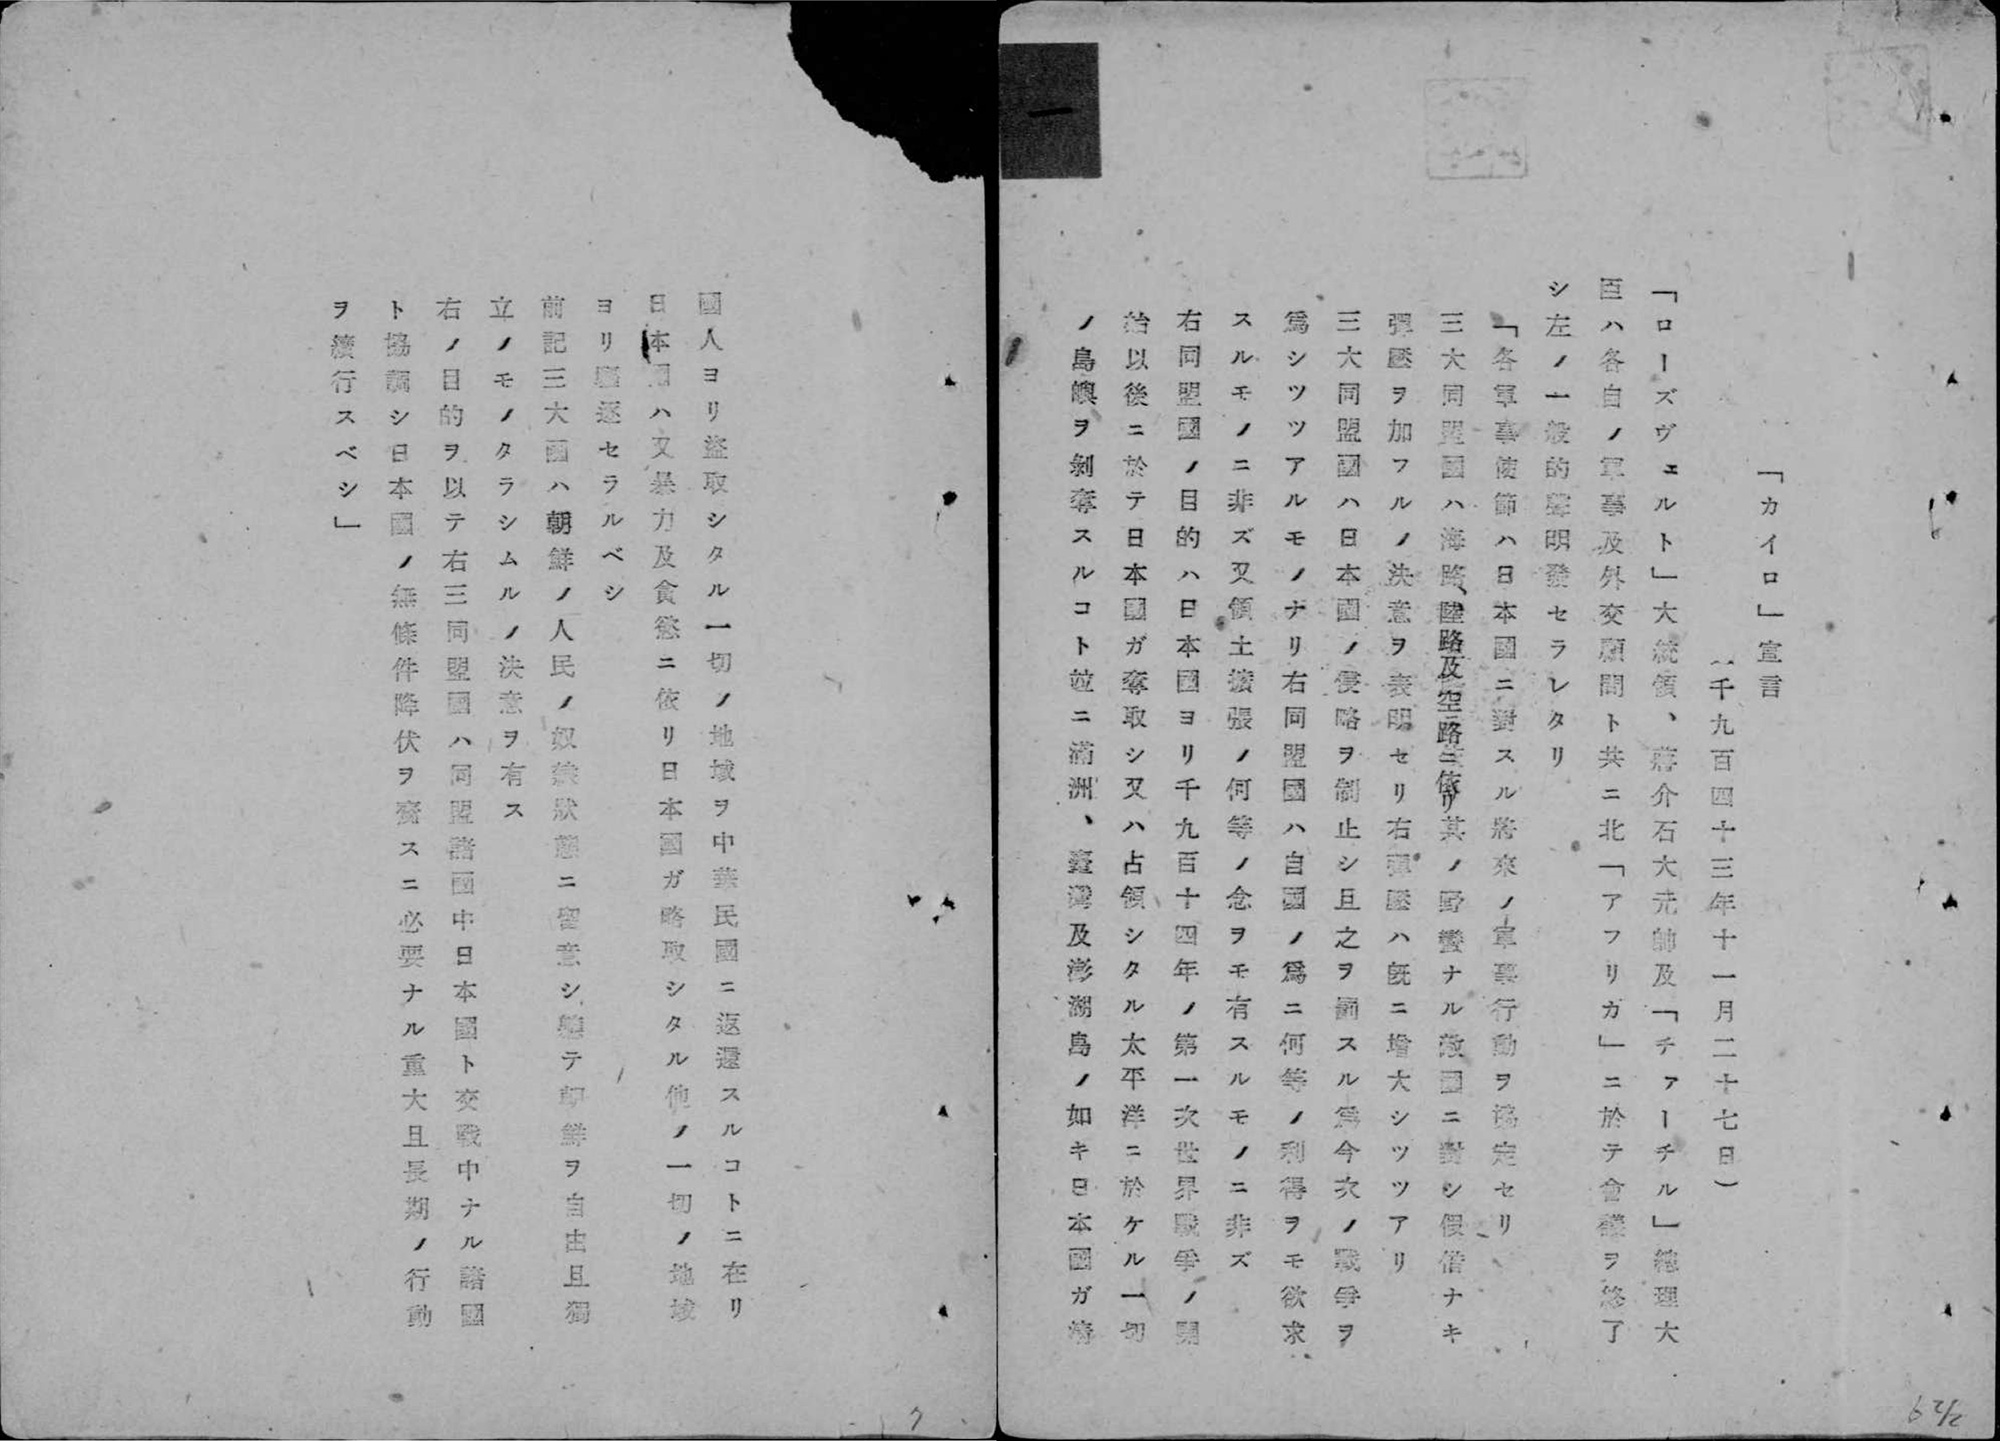 一
「カイロ」宣言
(千九百四十三年十一月二十七日)
「ローズヴェルト」大統領、蔣介石大元帥及「チァーチル」總理大
臣ハ各自ノ軍事及外交顧問ト共ニ北「アフリカ」ニ於テ會議ヲ終了
シ左ノ一般的聲明發セラレタリ
「各軍事使節ハ日本國ニ對スル將來ノ軍事行動ヲ協定セリ
三大同盟國ハ海路、陸路及空路ニ依リ其ノ野蠻ナル敵國ニ對シ假借ナキ
彈壓ヲ加フルノ決意ヲ表明セリ右彈壓ハ既ニ增大シツツアリ
三大同盟國ハ日本國ノ侵略ヲ制止シ且之ヲ罰スル爲今次ノ戰爭ヲ
爲シツツアルモノナリ右同盟國ハ自國ノ爲ニ何等ノ利得ヲモ欲求
スルモノニ非ズ又領土擴張ノ何等ノ念ヲモ有スルモノニ非ズ
右同盟國ノ目的ハ日本國ヨリ千九百十四年ノ第一次世界戰爭ノ開
始以後ニ於テ日本國ガ奪取シ又ハ占領シタル太平洋ニ於ケル一切
ノ島嶼ヲ剝奪スルコト竝ニ滿洲、臺灣及澎湖島ノ如キ日本國ガ淸
國人ヨリ盜取シタル一切ノ地域ヲ中華民國ニ返還スルコトニ在リ
日本國ハ又暴力及貪慾ニ依リ日本國ガ略取シタル他ノ一切ノ地域
ヨリ驅逐セラルベシ
前記三大國ハ朝鮮ノ人民ノ奴隸狀態ニ留意シ軈テ朝鮮ヲ自由且獨
立ノモノタラシムルノ決意ヲ有ス
右ノ目的ヲ以テ右三同盟國ハ同盟諸國中日本國ト交戰中ナル諸國
ト協調シ日本國ノ無條件降伏ヲ齎スニ必要ナル重大且長期ノ行動
ヲ續行スベシ」